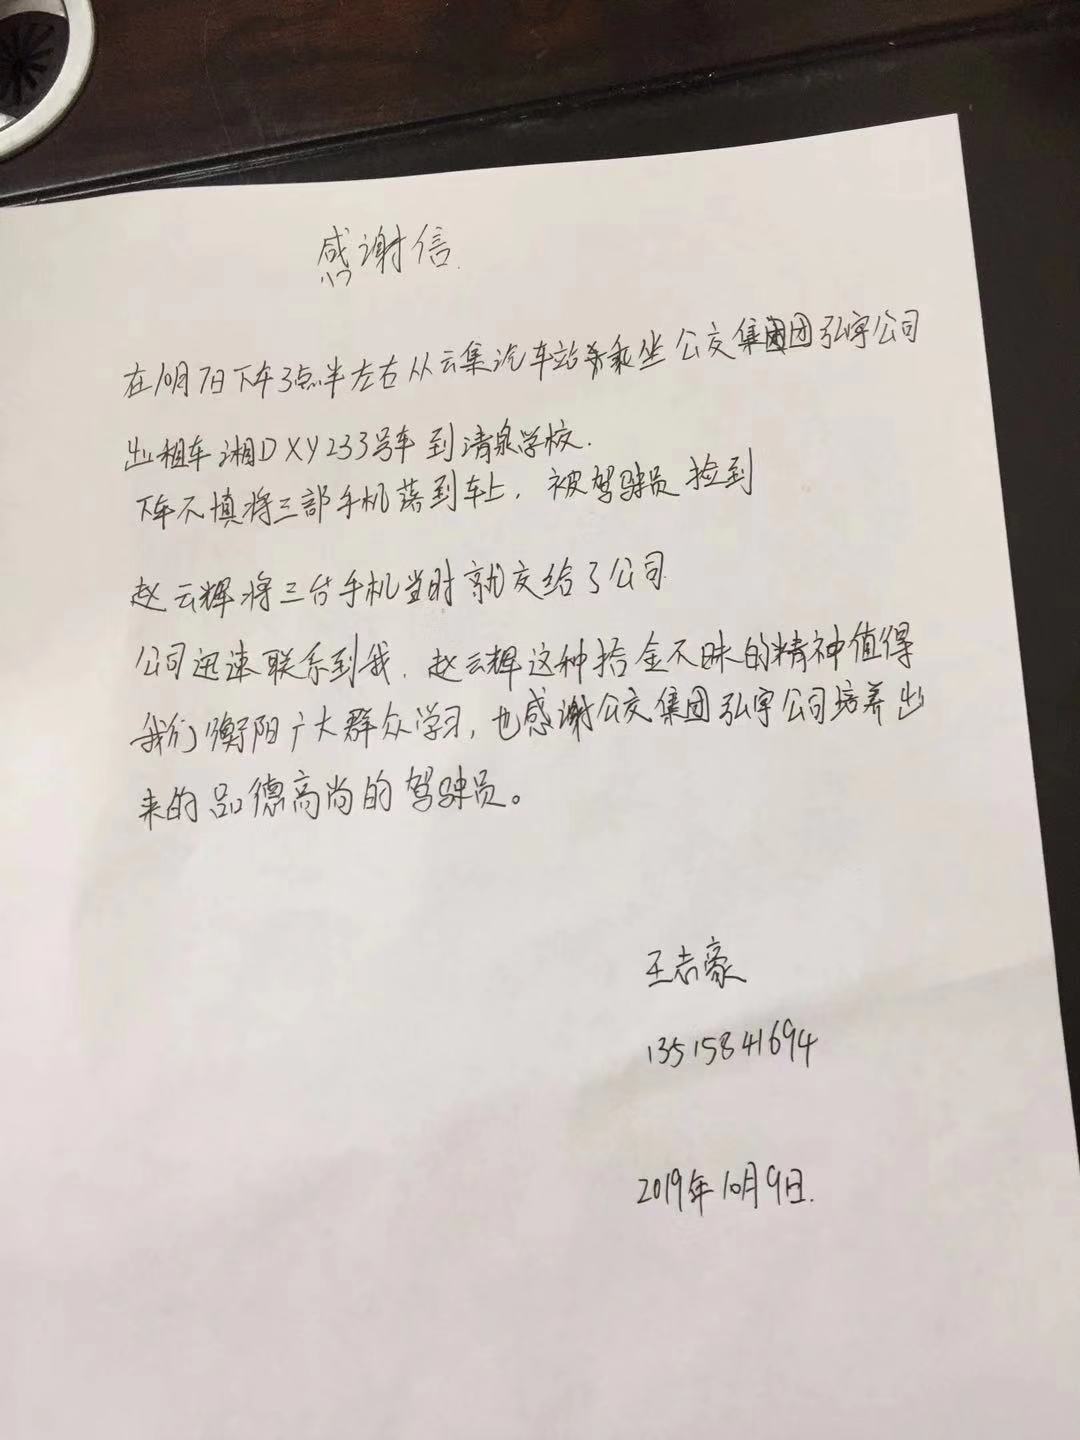 感谢信
在10月7日下午3点半左右从云集汽车站乘坐公交集团弘宇公司
出租车湘DXY233号车到清泉学校.
下车不填将三部手机落到车上,被驾驶员捡到
赵云辉将三台手机当时就交给了公司
公司迅速联系到我.赵云辉这种拾金不昧的精神值得
我们衡阳广大群众学习,也感谢公交集团弘宇公司培养出
来的品德高尚的驾驶员。
王志豪
13515841694
2019年10月9日.